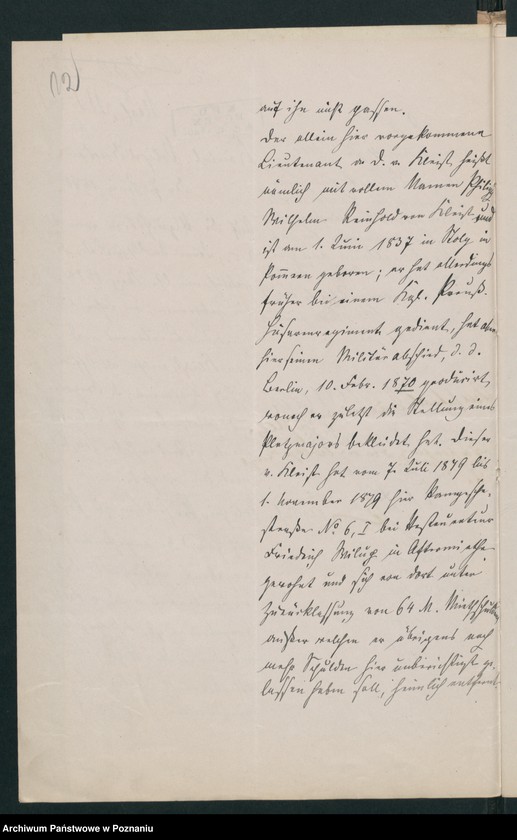 12
auf ihn nicht passen.
Der allein hier vorgekommene
Lieutenant a. D. v. Kleist heißt
nämlich mit vollem Namen Philipp
Wilhelm Reinhold von Kleist und
ist am 1. Juni 1837 in Stolp in
Pommern geboren; er hat allerdings
früher bei einem Kgl. Preuß.
Husarenregiment gedient, hat aber
hier seinen Militärabschied, d. d.
Berlin, 10. Febr. 1870 producirt,
wonach er zuletzt die Stellung eines
Platzmajors bekleidet hat. Dieser
v. Kleist hat vom 7. Juli 1879 bis
1. November 1879 hier
straße No 6, I bei Restaurateur
Friedrich in Aftermiethe
gewohnt und sich von dort unter
Zurücklassung von 64 M. Miethschulden,
außer welchen er übrigens noch
mehr Schulden hier unberichtigt ge-
lassen haben soll, heimlich entfernt
Archiwum Państwowe w Poznaniu